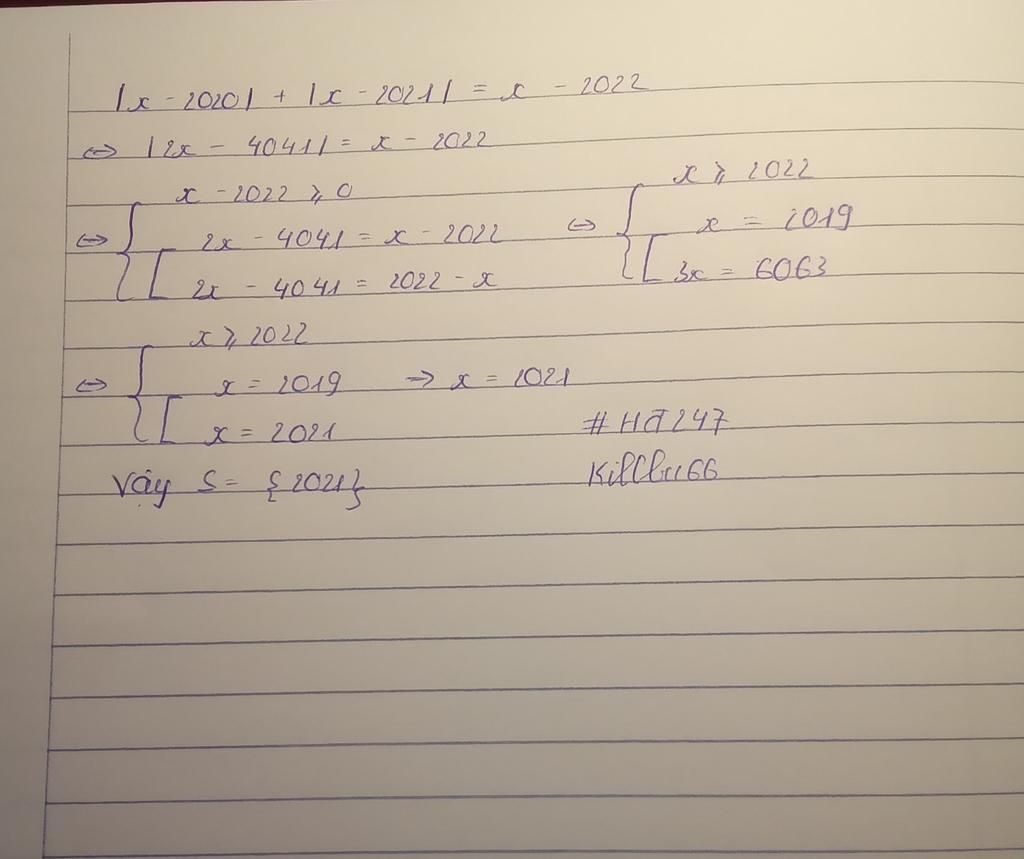 |x - 2020| + |x - 2021| = x - 2022
⇔ |2x - 4041| = x - 2022
x - 2022 ⩾ 0
⇔ { [ 2x - 4041 = x - 2022
2x - 4041 = 2022 - x
x ⩾ 2022
⇔ { [ x = 2019
3x = 6063
x ⩾ 2022
⇔ { [ x = 2019 → x = 2021
x = 2021
Vậy S = {2021}
#HĐ247